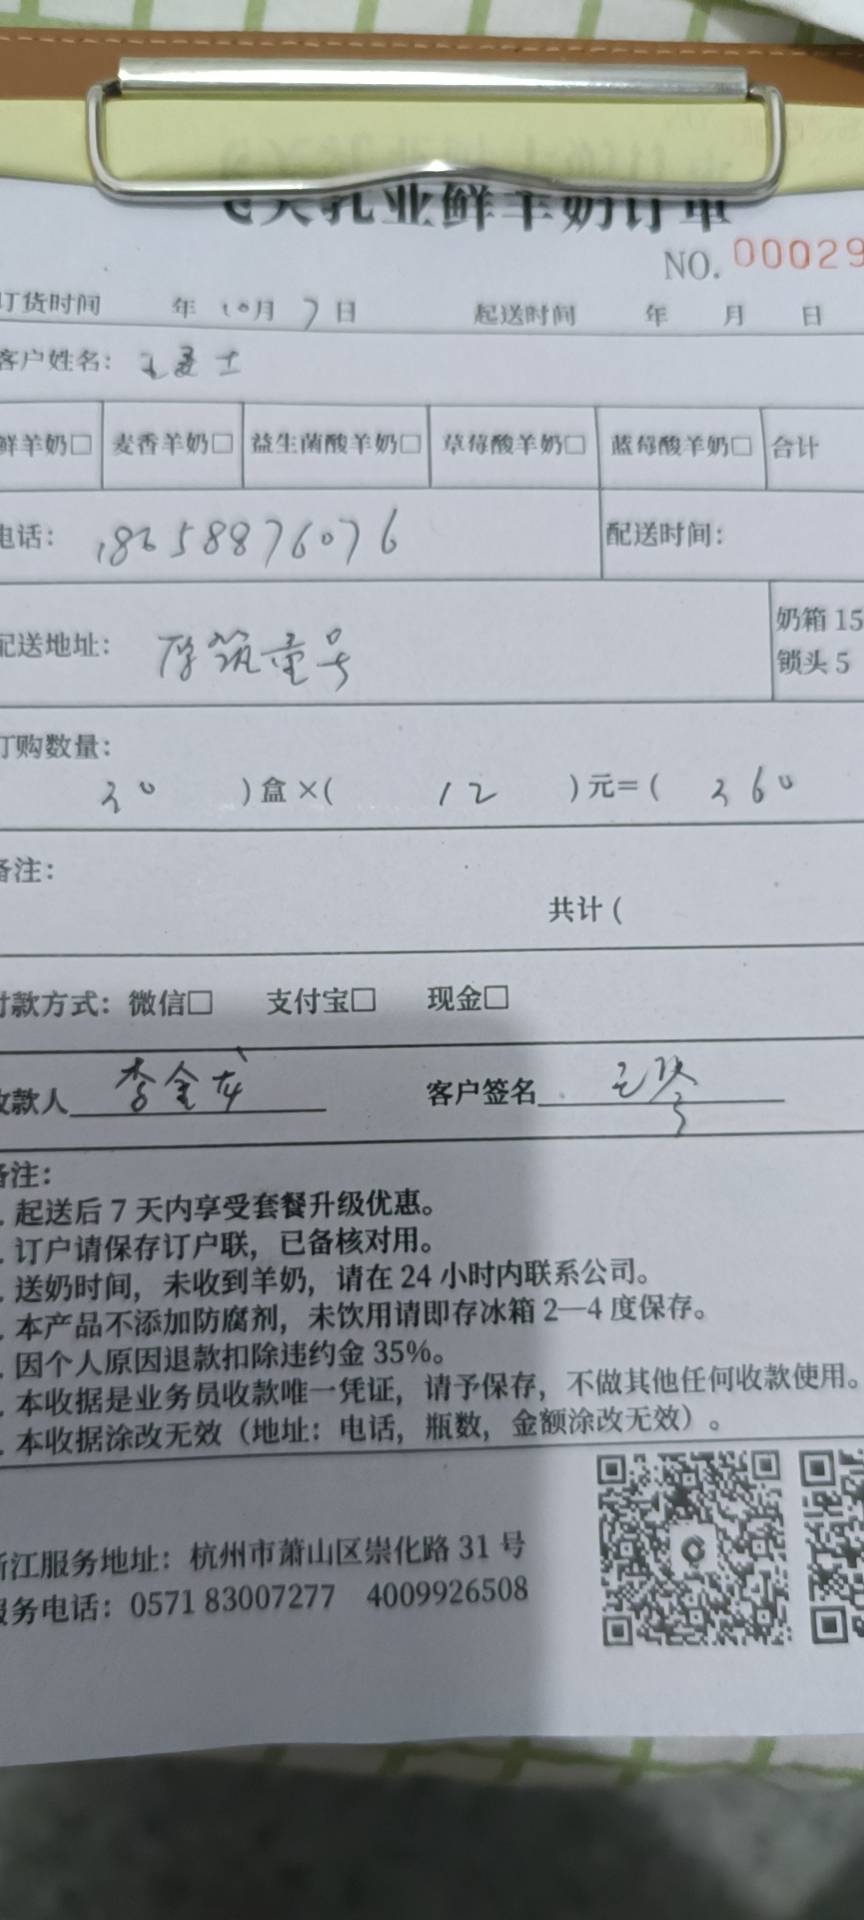 乳业鲜羊奶订单
NO. 00029
订货时间 年 10月 7日 起送时间 年 月 日
客户姓名：
鲜羊奶□ 麦香羊奶□ 益生菌酸羊奶□ 草莓酸羊奶□ 蓝莓酸羊奶□ 合计
电话： 18658876076 配送时间：
配送地址： 号 奶箱 15
锁头 5
订购数量：
30 ）盒 ×（ 12 ）元=（ 360
备注：
共计（
付款方式：微信□ 支付宝□ 现金□
收款人 李金龙 客户签名
备注：
. 起送后 7 天内享受套餐升级优惠。
. 订户请保存订户联，已备核对用。
. 送奶时间，未收到羊奶，请在 24 小时内联系公司。
. 本产品不添加防腐剂，未饮用请即存冰箱 2—4 度保存。
. 因个人原因退款扣除违约金 35%。
. 本收据是业务员收款唯一凭证，请予保存，不做其他任何收款使用。
. 本收据涂改无效（地址：电话，瓶数，金额涂改无效）。
浙江服务地址：杭州市萧山区崇化路 31 号
服务电话：0571 83007277 4009926508